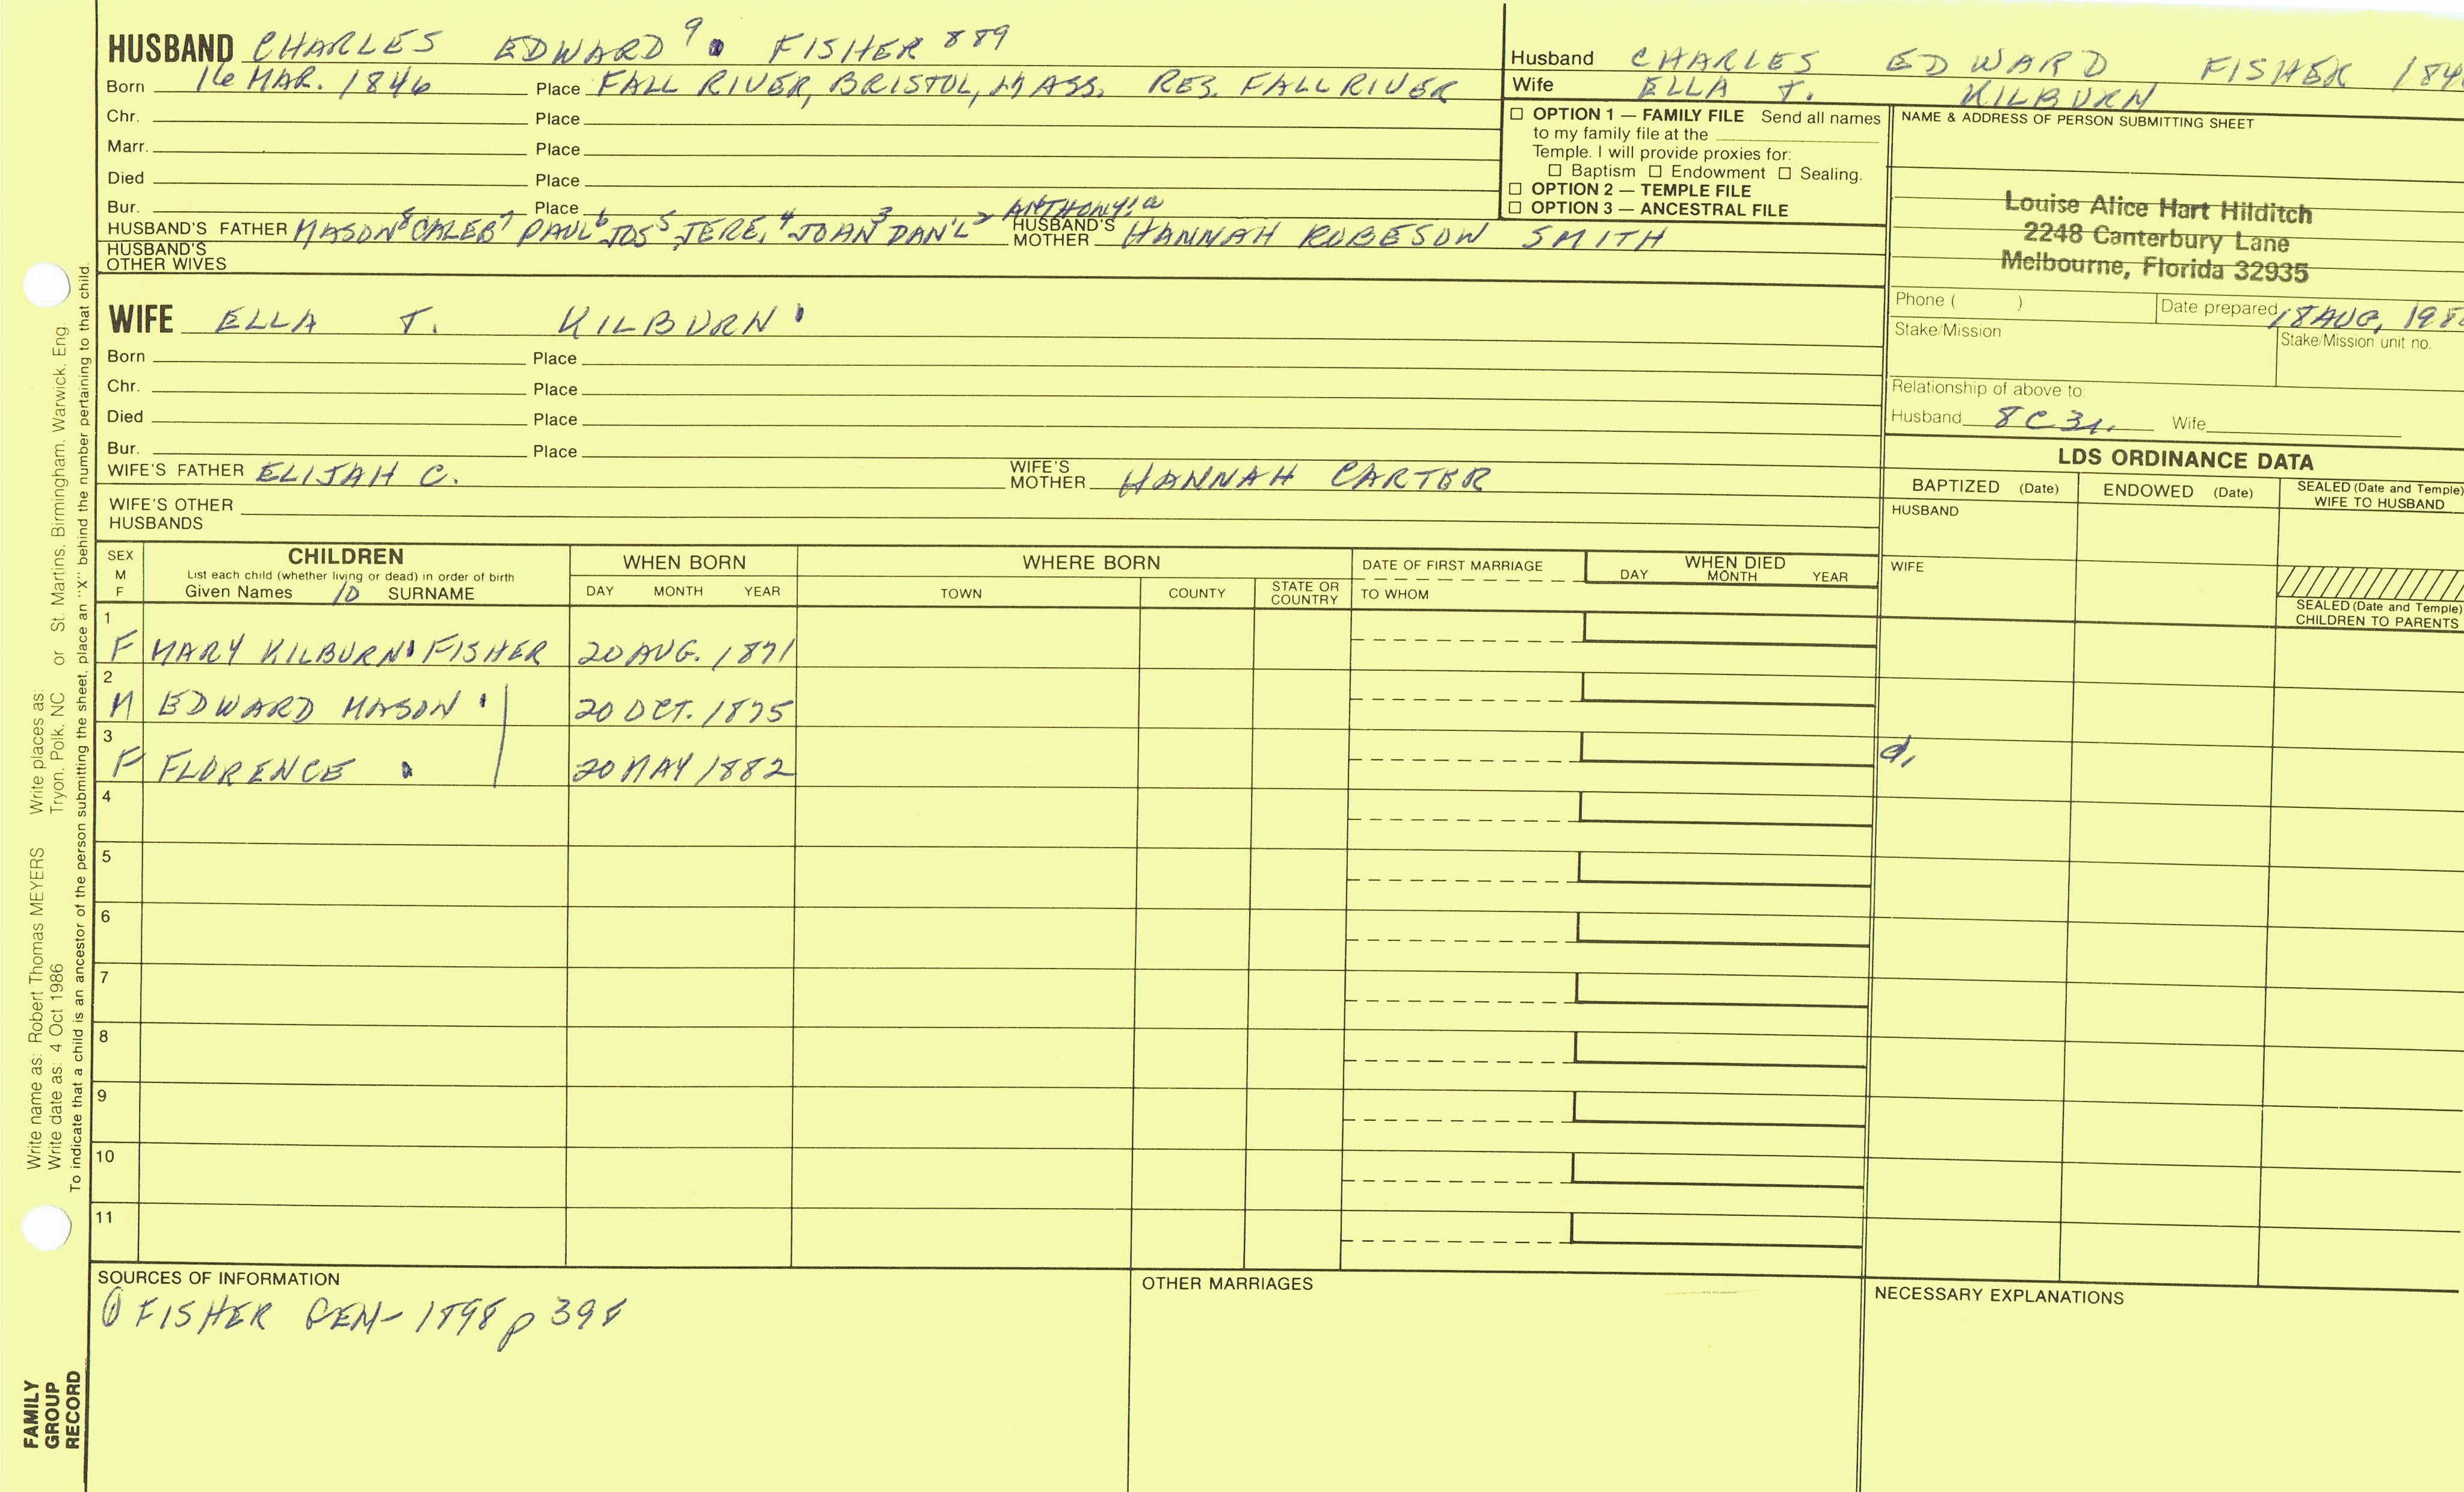 HUSBAND CHARLES EDWARD 9 FISHER 889
Born 16 MAR. 1846 Place FALL RIVER, BRISTOL, MASS. RES. FALL RIVER
Chr. Place
Marr. Place
Died Place
Bur. Place
HUSBAND'S FATHER MASON 8 CALEB 7 PAUL 6 JOS 5 JERE. 4 JOHN 3 DAN'L 2 ANTHONY 1 HUSBAND'S MOTHER HANNAH ROBESON SMITH
HUSBAND'S OTHER WIVES
WIFE ELLA T. KILBURN
Born Place
Chr. Place
Died Place
Bur. Place
WIFE'S FATHER ELIJAH C. WIFE'S MOTHER HANNAH CARTER
WIFE'S OTHER HUSBANDS
Husband CHARLES EDWARD FISHER 184
Wife ELLA T. KILBURN
☐ OPTION 1 — FAMILY FILE Send all names
to my family file at the
Temple. I will provide proxies for:
☐ Baptism ☐ Endowment ☐ Sealing.
☐ OPTION 2 — TEMPLE FILE
☐ OPTION 3 — ANCESTRAL FILE
NAME & ADDRESS OF PERSON SUBMITTING SHEET
Louise Alice Hart Hilditch
2248 Canterbury Lane
Melbourne, Florida 32935
Phone ( ) Date prepared 18 AUG, 198
Stake/Mission Stake/Mission unit no.
Relationship of above to:
Husband 8C3r. Wife
LDS ORDINANCE DATA
BAPTIZED (Date) ENDOWED (Date) SEALED (Date and Temple) WIFE TO HUSBAND
HUSBAND
WIFE
SEALED (Date and Temple) CHILDREN TO PARENTS
SEX M F CHILDREN WHEN BORN WHERE BORN DATE OF FIRST MARRIAGE WHEN DIED
List each child (whether living or dead) in order of birth
Given Names 10 SURNAME DAY MONTH YEAR TOWN COUNTY STATE OR COUNTRY TO WHOM DAY MONTH YEAR
1
F MARY KILBURN FISHER 20 AUG. 1871
2
M EDWARD MASON 20 OCT. 1875
3
F FLORENCE 20 MAY 1882 d.
4
5
6
7
8
9
10
11
SOURCES OF INFORMATION
① FISHER GEN- 1898 p 398
OTHER MARRIAGES
NECESSARY EXPLANATIONS
Write name as: Robert Thomas MEYERS Write places as: Tryon, Polk, NC or St. Martins, Birmingham, Warwick, Eng
Write date as: 4 Oct 1986
To indicate that a child is an ancestor of the person submitting the sheet, place an "X" behind the number pertaining to that child.
FAMILY
GROUP
RECORD